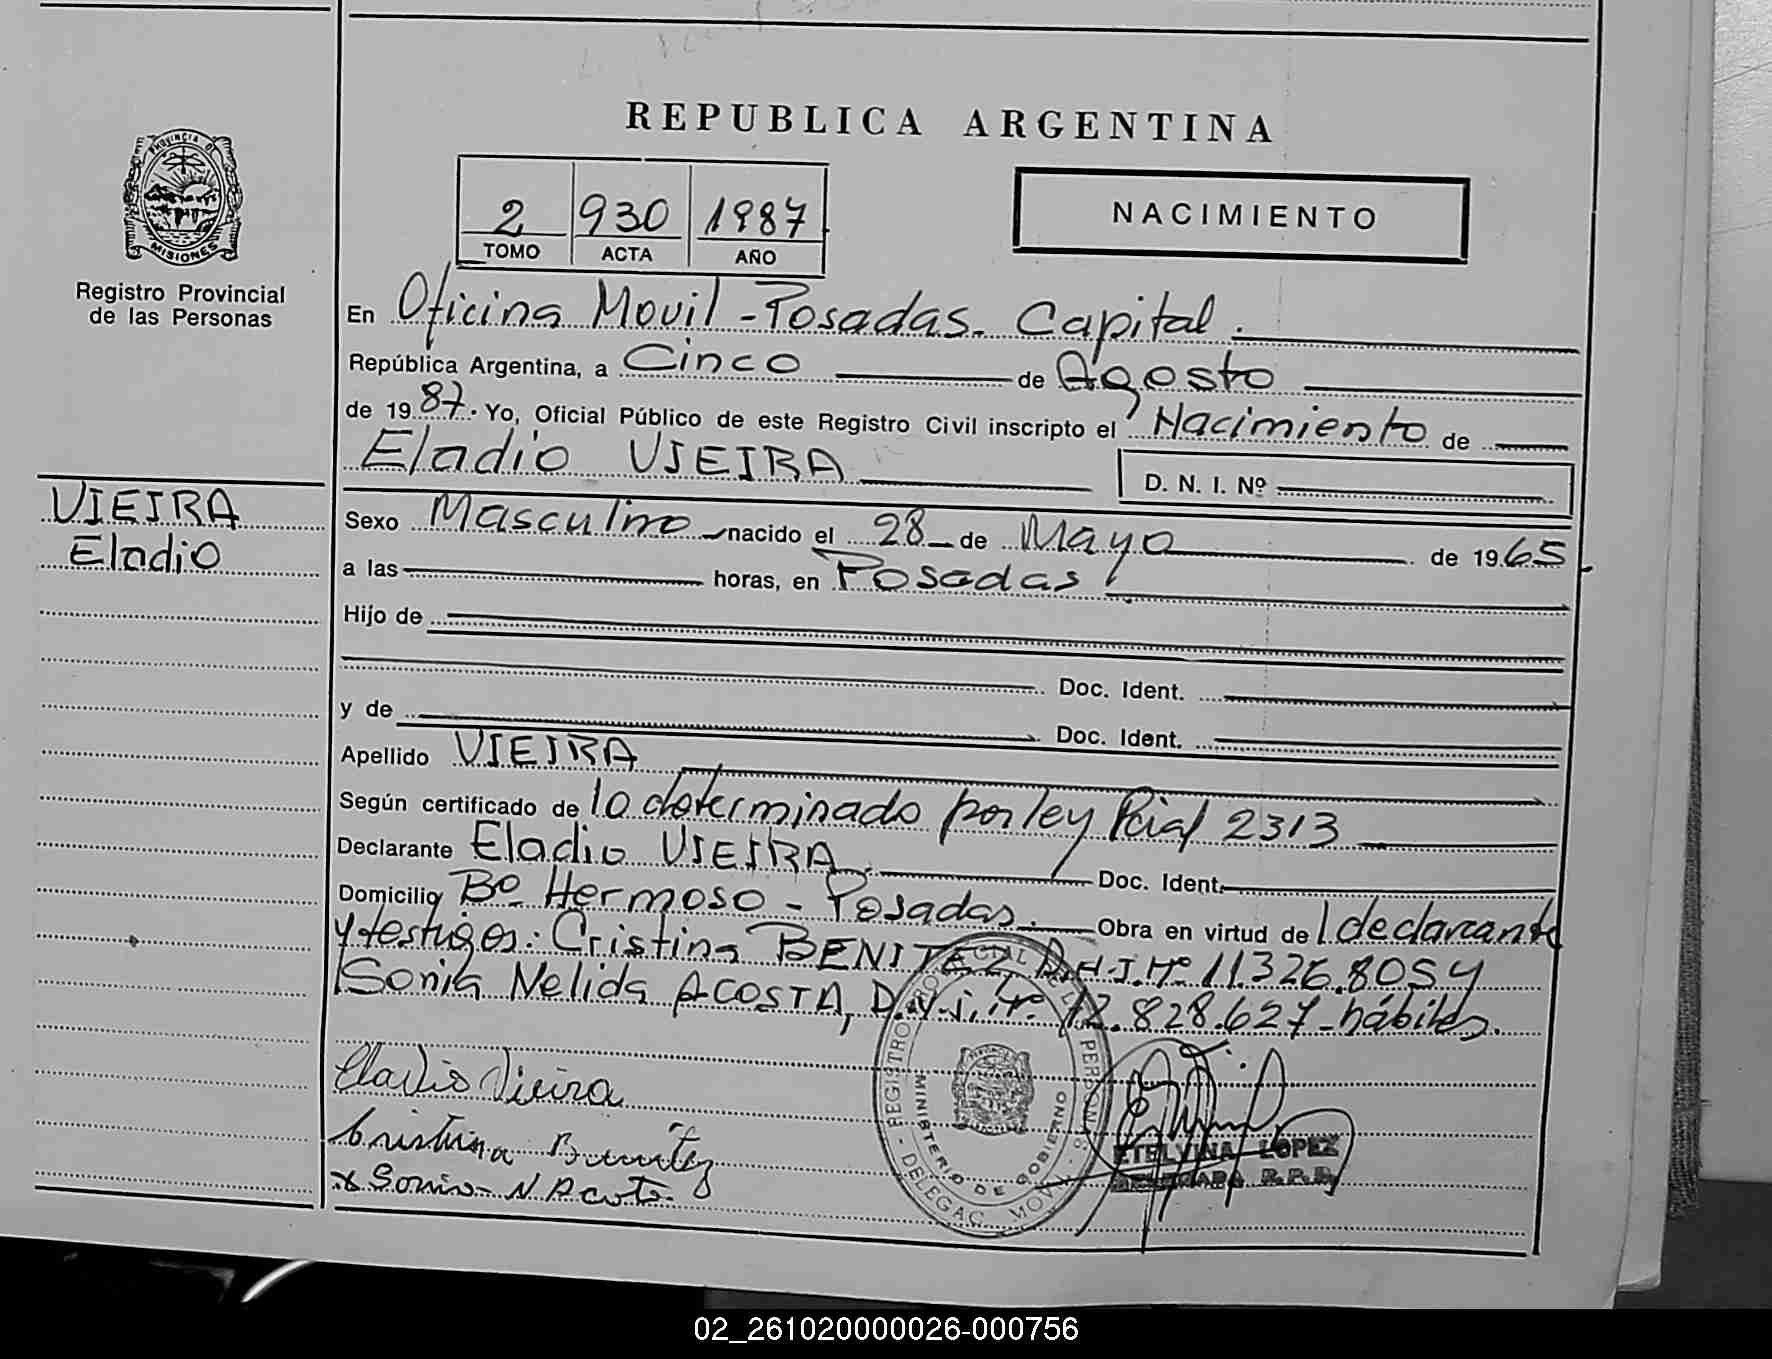 REPUBLICA ARGENTINA
PROVINCIA DE MISIONES
Registro Provincial
de las Personas
2 930 1987
TOMO ACTA AÑO
NACIMIENTO
En Oficina Movil - Posadas. Capital.
República Argentina, a Cinco de Agosto
de 1987. Yo, Oficial Público de este Registro Civil inscripto el Nacimiento de
Eladio VIEIRA D. N. I. Nº
VIEIRA
Eladio
Sexo Masculino nacido el 28 de Mayo de 1965
a las horas, en Posadas
Hijo de
Doc. Ident.
y de Doc. Ident.
Apellido VIEIRA
Según certificado de lo determinado por ley Pcial 2313
Declarante Eladio VIEIRA. Doc. Ident.
Domicilio Bº Hermoso - Posadas. Obra en virtud de l declarante
y testigos: Cristina BENITEZ D.N.I. Nº 11.326.805 y
Sonia Nelida ACOSTA, D.N.I. Nº 12.828.627 - hábiles.
Eladio Vieira
Cristina Benitez
x Sonia N Acosta
REGISTRO PROVINCIAL DE LAS PERSONAS - DELEGAC. MOVIL -
MINISTERIO DE GOBIERNO
ETELVINA LOPEZ
DELEGADA R.P.P.
02_261020000026-000756